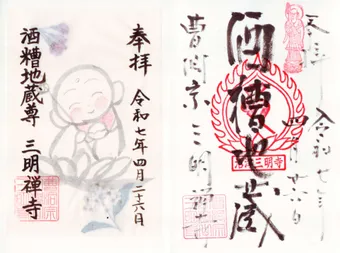 奉拝
令和七年四月二十六日
酒糟地蔵尊
三明禅寺
奉拝
令和七年
四月廿六日
酒糟地蔵
曹洞宗三明禅寺